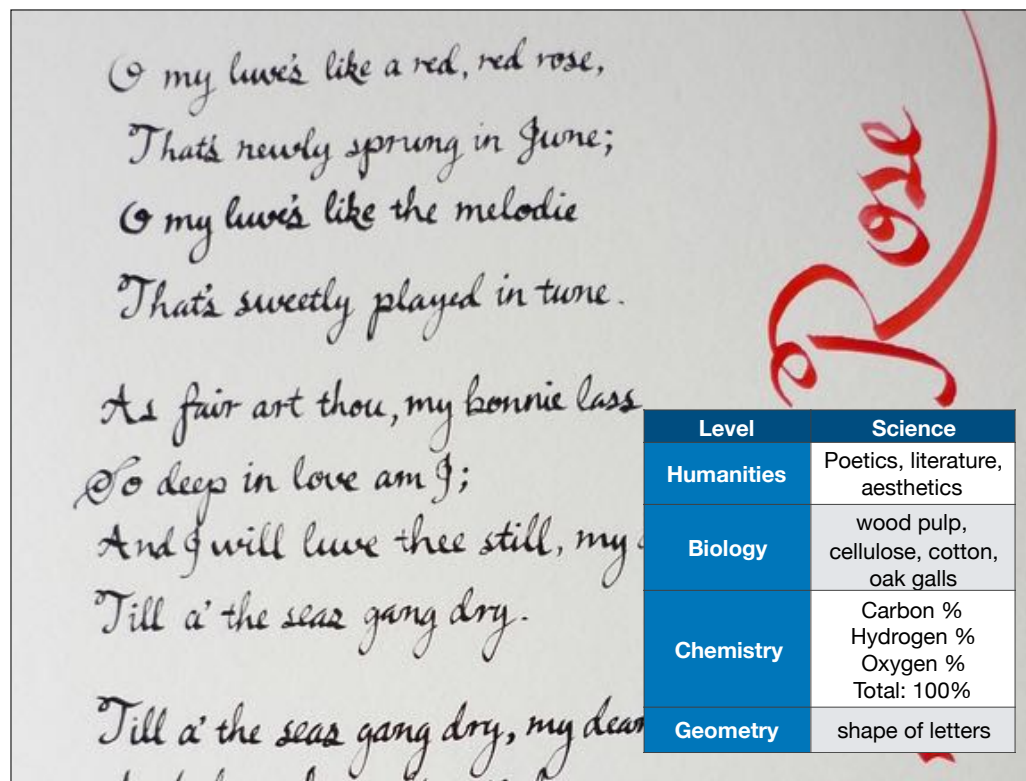 O my luve's like a red, red rose,
That's newly sprung in June;
O my luve's like the melodie
That's sweetly played in tune.
As fair art thou, my bonnie lass
So deep in love am I;
And I will luve thee still, my
Till a' the seas gang dry.
Till a' the seas gang dry, my dear
Rose
Level Science
Humanities Poetics, literature,
aesthetics
Biology wood pulp,
cellulose, cotton,
oak galls
Chemistry Carbon %
Hydrogen %
Oxygen %
Total: 100%
Geometry shape of letters